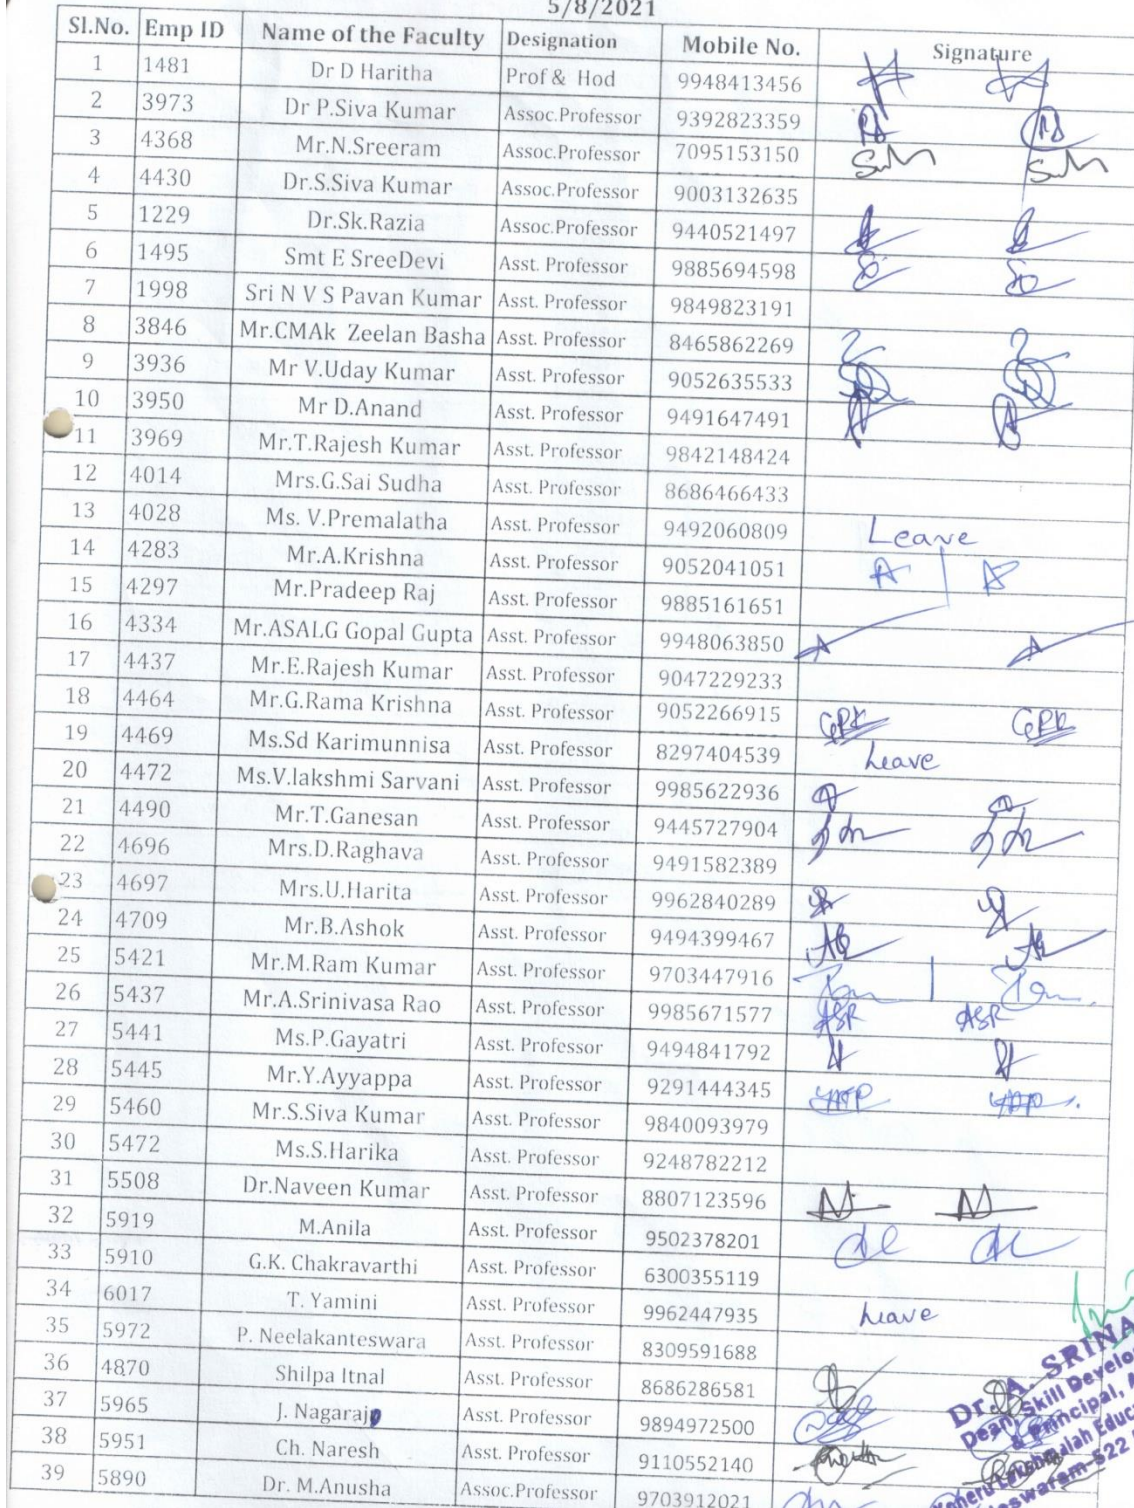 5/8/2021
Sl.No. Emp ID Name of the Faculty Designation Mobile No. Signature
1 1481 Dr D Haritha Prof & Hod 9948413456
2 3973 Dr P.Siva Kumar Assoc.Professor 9392823359
3 4368 Mr.N.Sreeram Assoc.Professor 7095153150
4 4430 Dr.S.Siva Kumar Assoc.Professor 9003132635
5 1229 Dr.Sk.Razia Assoc.Professor 9440521497
6 1495 Smt E SreeDevi Asst. Professor 9885694598
7 1998 Sri N V S Pavan Kumar Asst. Professor 9849823191
8 3846 Mr.CMAk Zeelan Basha Asst. Professor 8465862269
9 3936 Mr V.Uday Kumar Asst. Professor 9052635533
10 3950 Mr D.Anand Asst. Professor 9491647491
11 3969 Mr.T.Rajesh Kumar Asst. Professor 9842148424
12 4014 Mrs.G.Sai Sudha Asst. Professor 8686466433
13 4028 Ms. V.Premalatha Asst. Professor 9492060809 Leave
14 4283 Mr.A.Krishna Asst. Professor 9052041051
15 4297 Mr.Pradeep Raj Asst. Professor 9885161651
16 4334 Mr.ASALG Gopal Gupta Asst. Professor 9948063850
17 4437 Mr.E.Rajesh Kumar Asst. Professor 9047229233
18 4464 Mr.G.Rama Krishna Asst. Professor 9052266915 GRK GRK
19 4469 Ms.Sd Karimunnisa Asst. Professor 8297404539 Leave
20 4472 Ms.V.lakshmi Sarvani Asst. Professor 9985622936
21 4490 Mr.T.Ganesan Asst. Professor 9445727904
22 4696 Mrs.D.Raghava Asst. Professor 9491582389
23 4697 Mrs.U.Harita Asst. Professor 9962840289
24 4709 Mr.B.Ashok Asst. Professor 9494399467
25 5421 Mr.M.Ram Kumar Asst. Professor 9703447916
26 5437 Mr.A.Srinivasa Rao Asst. Professor 9985671577 ASR ASR
27 5441 Ms.P.Gayatri Asst. Professor 9494841792
28 5445 Mr.Y.Ayyappa Asst. Professor 9291444345
29 5460 Mr.S.Siva Kumar Asst. Professor 9840093979
30 5472 Ms.S.Harika Asst. Professor 9248782212
31 5508 Dr.Naveen Kumar Asst. Professor 8807123596
32 5919 M.Anila Asst. Professor 9502378201
33 5910 G.K. Chakravarthi Asst. Professor 6300355119
34 6017 T. Yamini Asst. Professor 9962447935 Leave
35 5972 P. Neelakanteswara Asst. Professor 8309591688
36 4870 Shilpa Itnal Asst. Professor 8686286581
37 5965 J. Nagaraj Asst. Professor 9894972500
38 5951 Ch. Naresh Asst. Professor 9110552140
39 5890 Dr. M.Anusha Assoc.Professor 9703912021
Dr. A. SRINA
Dean, Skill Develo
& Principal,